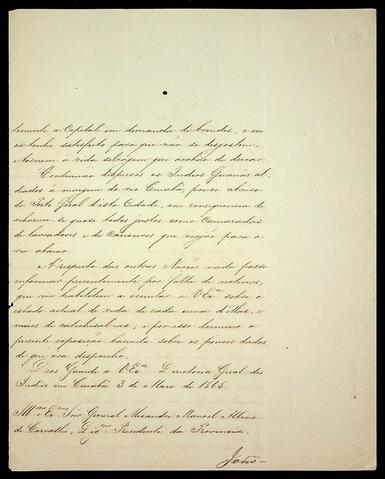 temente a Capital em demanda de brindes, e eu
os tenho satisfeito para que não se desgostem,
e tornem á vida selvagem que acabão de deixar.
Continuão dispersos os Indios Guanás al-
deados á margem do rio Cuiabá, pouco abaixo
do Porto Geral d'esta Cidade, em consequencia de
acharem-se quase todos justos como Camaradas
de lavradores e de Canoeiros que viajão para o
rio abaixo.
A respeito das outras Nações nada posso
informar presentemente por falta de noticias,
que me habilitem a orientar a V.Exª sobre o
estado actual de vida de cada uma d'ellas, e
meios de catechisal-as; e por isso termino a
presente exposição baseada sobre os poucos dados
de que ora disponho.
Deos Guarde a V.Exª. Directoria Geral dos
Indios em Cuiabá 3 de Maro de 1865.
Illmo e Exmo Snr. General Alexandre Manoel Albino
de Carvalho, Digmo Presidente da Provincia.
João-